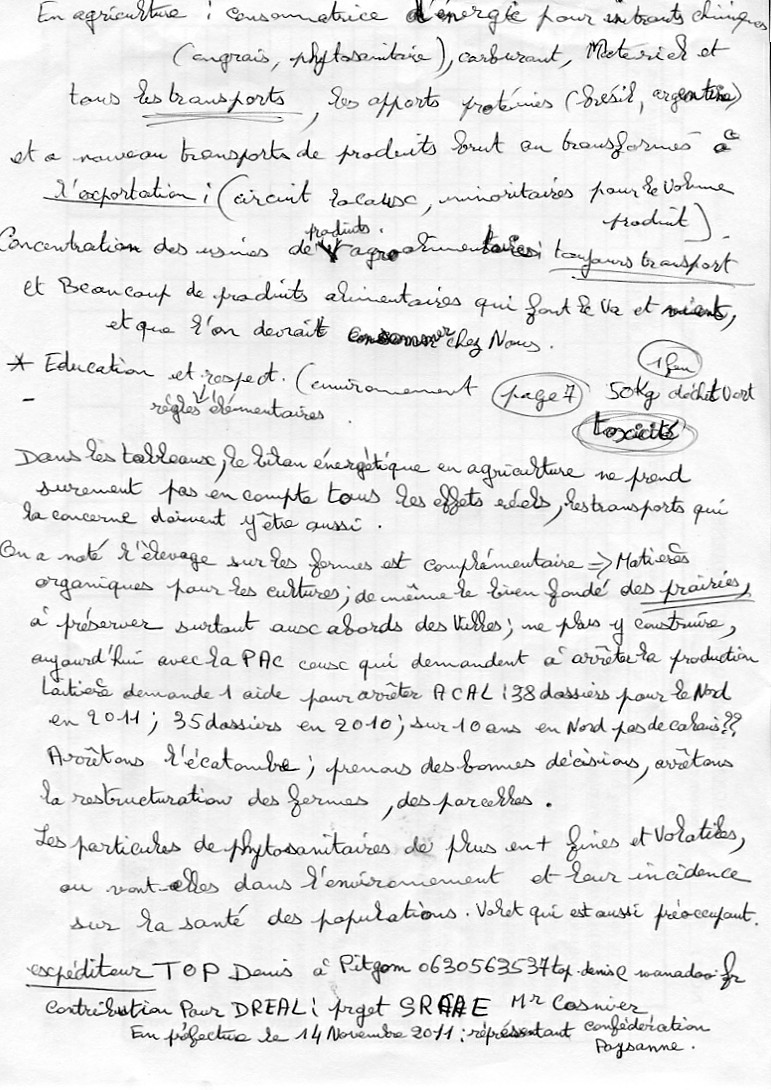 En agriculture : consommatrice d'énergie pour intrants chimiques
(engrais, phytosanitaire), carburant, Materiel et
tous les transports, les apports protéines (brésil, argentine)
et a nouveau transports de produits brut ou transformés à
l'exportation : (circuit locaux, minoritaires pour le volume
produit)
Concentration des usines de produits agroalimentaires : toujours transport
et Beaucoup de produits alimentaires qui font le Va et vients,
et que l'on devrait consommer chez Nous.
* Education et respect. (environnement page 7 1 feu 50Kg déchet Vert
- règles élémentaires. toxicité
Dans les tableaux, le bilan énergétique en agriculture ne prend
surement pas en compte tous les effets réels, les transports qui
la concerne doivent y être aussi.
On a noté l'élevage sur les fermes est complémentaire => Matières
organiques pour les cultures ; de même le bien fondé des prairies,
à préserver surtout aux abords des Villes ; ne plus y construire,
aujourd'hui avec la PAC ceux qui demandent à arrêter la production
Laitière demande 1 aide pour arrêter ACAL : 38 dossiers pour le Nord
en 2011 ; 35 dossiers en 2010 ; sur 10 ans en Nord pas de calais ??
Arrêtons l'écatombe ; prenons des bonnes décisions, arrêtons
la restructuration des fermes, des parcelles.
Les particules de phytosanitaires de plus en + fines et Volatiles,
ou vont-elles dans l'environnement et leur incidence
sur la santé des populations. Volet qui est aussi préoccupant.
expéditeur TOP Denis à Pitgam 0630563537 top.denis@wanadoo.fr
contribution Pour DREAL : projet SRCAE Mr Cosnier
En préfecture le 14 Novembre 2011 : représentant confédération
Paysanne.